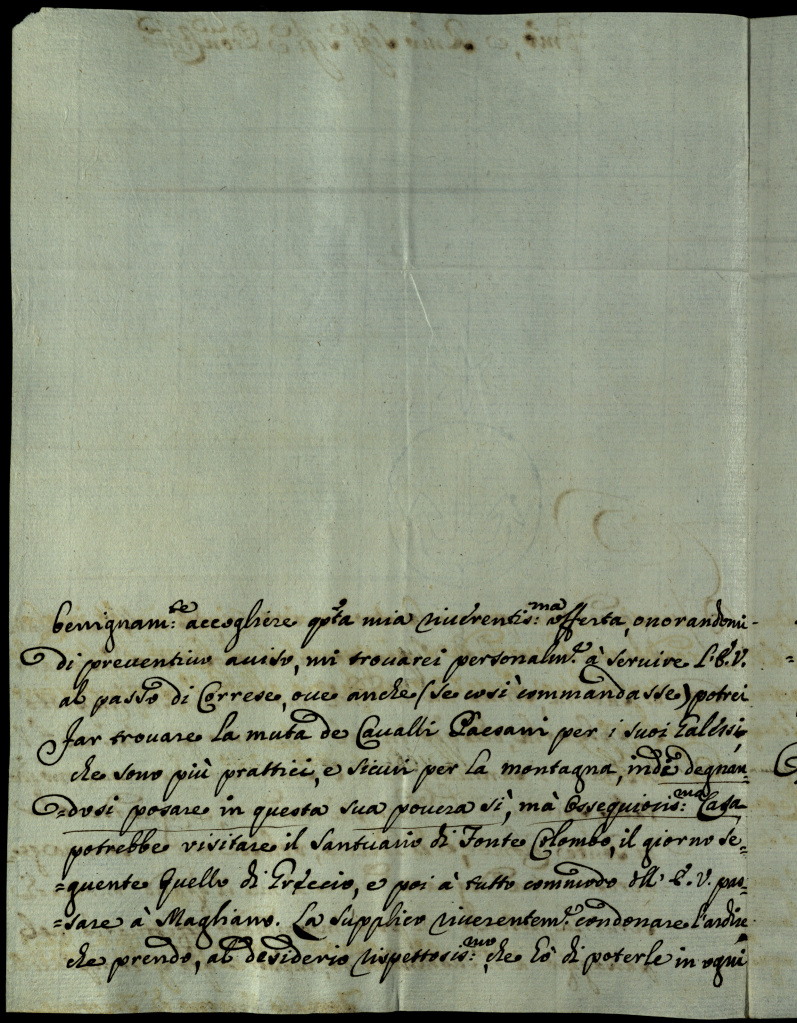 benignam:te accogliere qsta mia riverentis:ma offerta, onorandomi
di preventivo aviso, mi trovarei personalmte à servire l'E.V.
al passo di Correse, ove anche (se così commandasse) potrei
far trovare la muta de Cavalli Paesani per i suoi Calessi,
che sono più prattici, e sicuri per la montagna, indi degnan-
=dosi posare in questa sua povera sì, mà ossequiosis:ma Casa
potrebbe visitare il Santuario di Fonte Colombo, il giorno se-
=quente quello di Greccio, e poi à tutto commodo dell' E.V. pas-
=sare à Magliano. La supplico riverentemte condonare l'ardire
che prendo, al desiderio rispettosis:mo, che hò di poterle in ogni